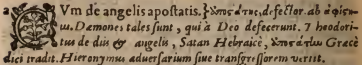 a Cum de angelis apostatis.} ἀποστάτης, defector. ab ἀφίςω-
ω. Dæmones tales sunt, qui à Deo defecerunt. Theodori-
tus de diis & angelis, Satan Hebraicè, ἀποστάτω Græcè
dici tradit. Hieronymus aduersarium siue transgressorem vertit.